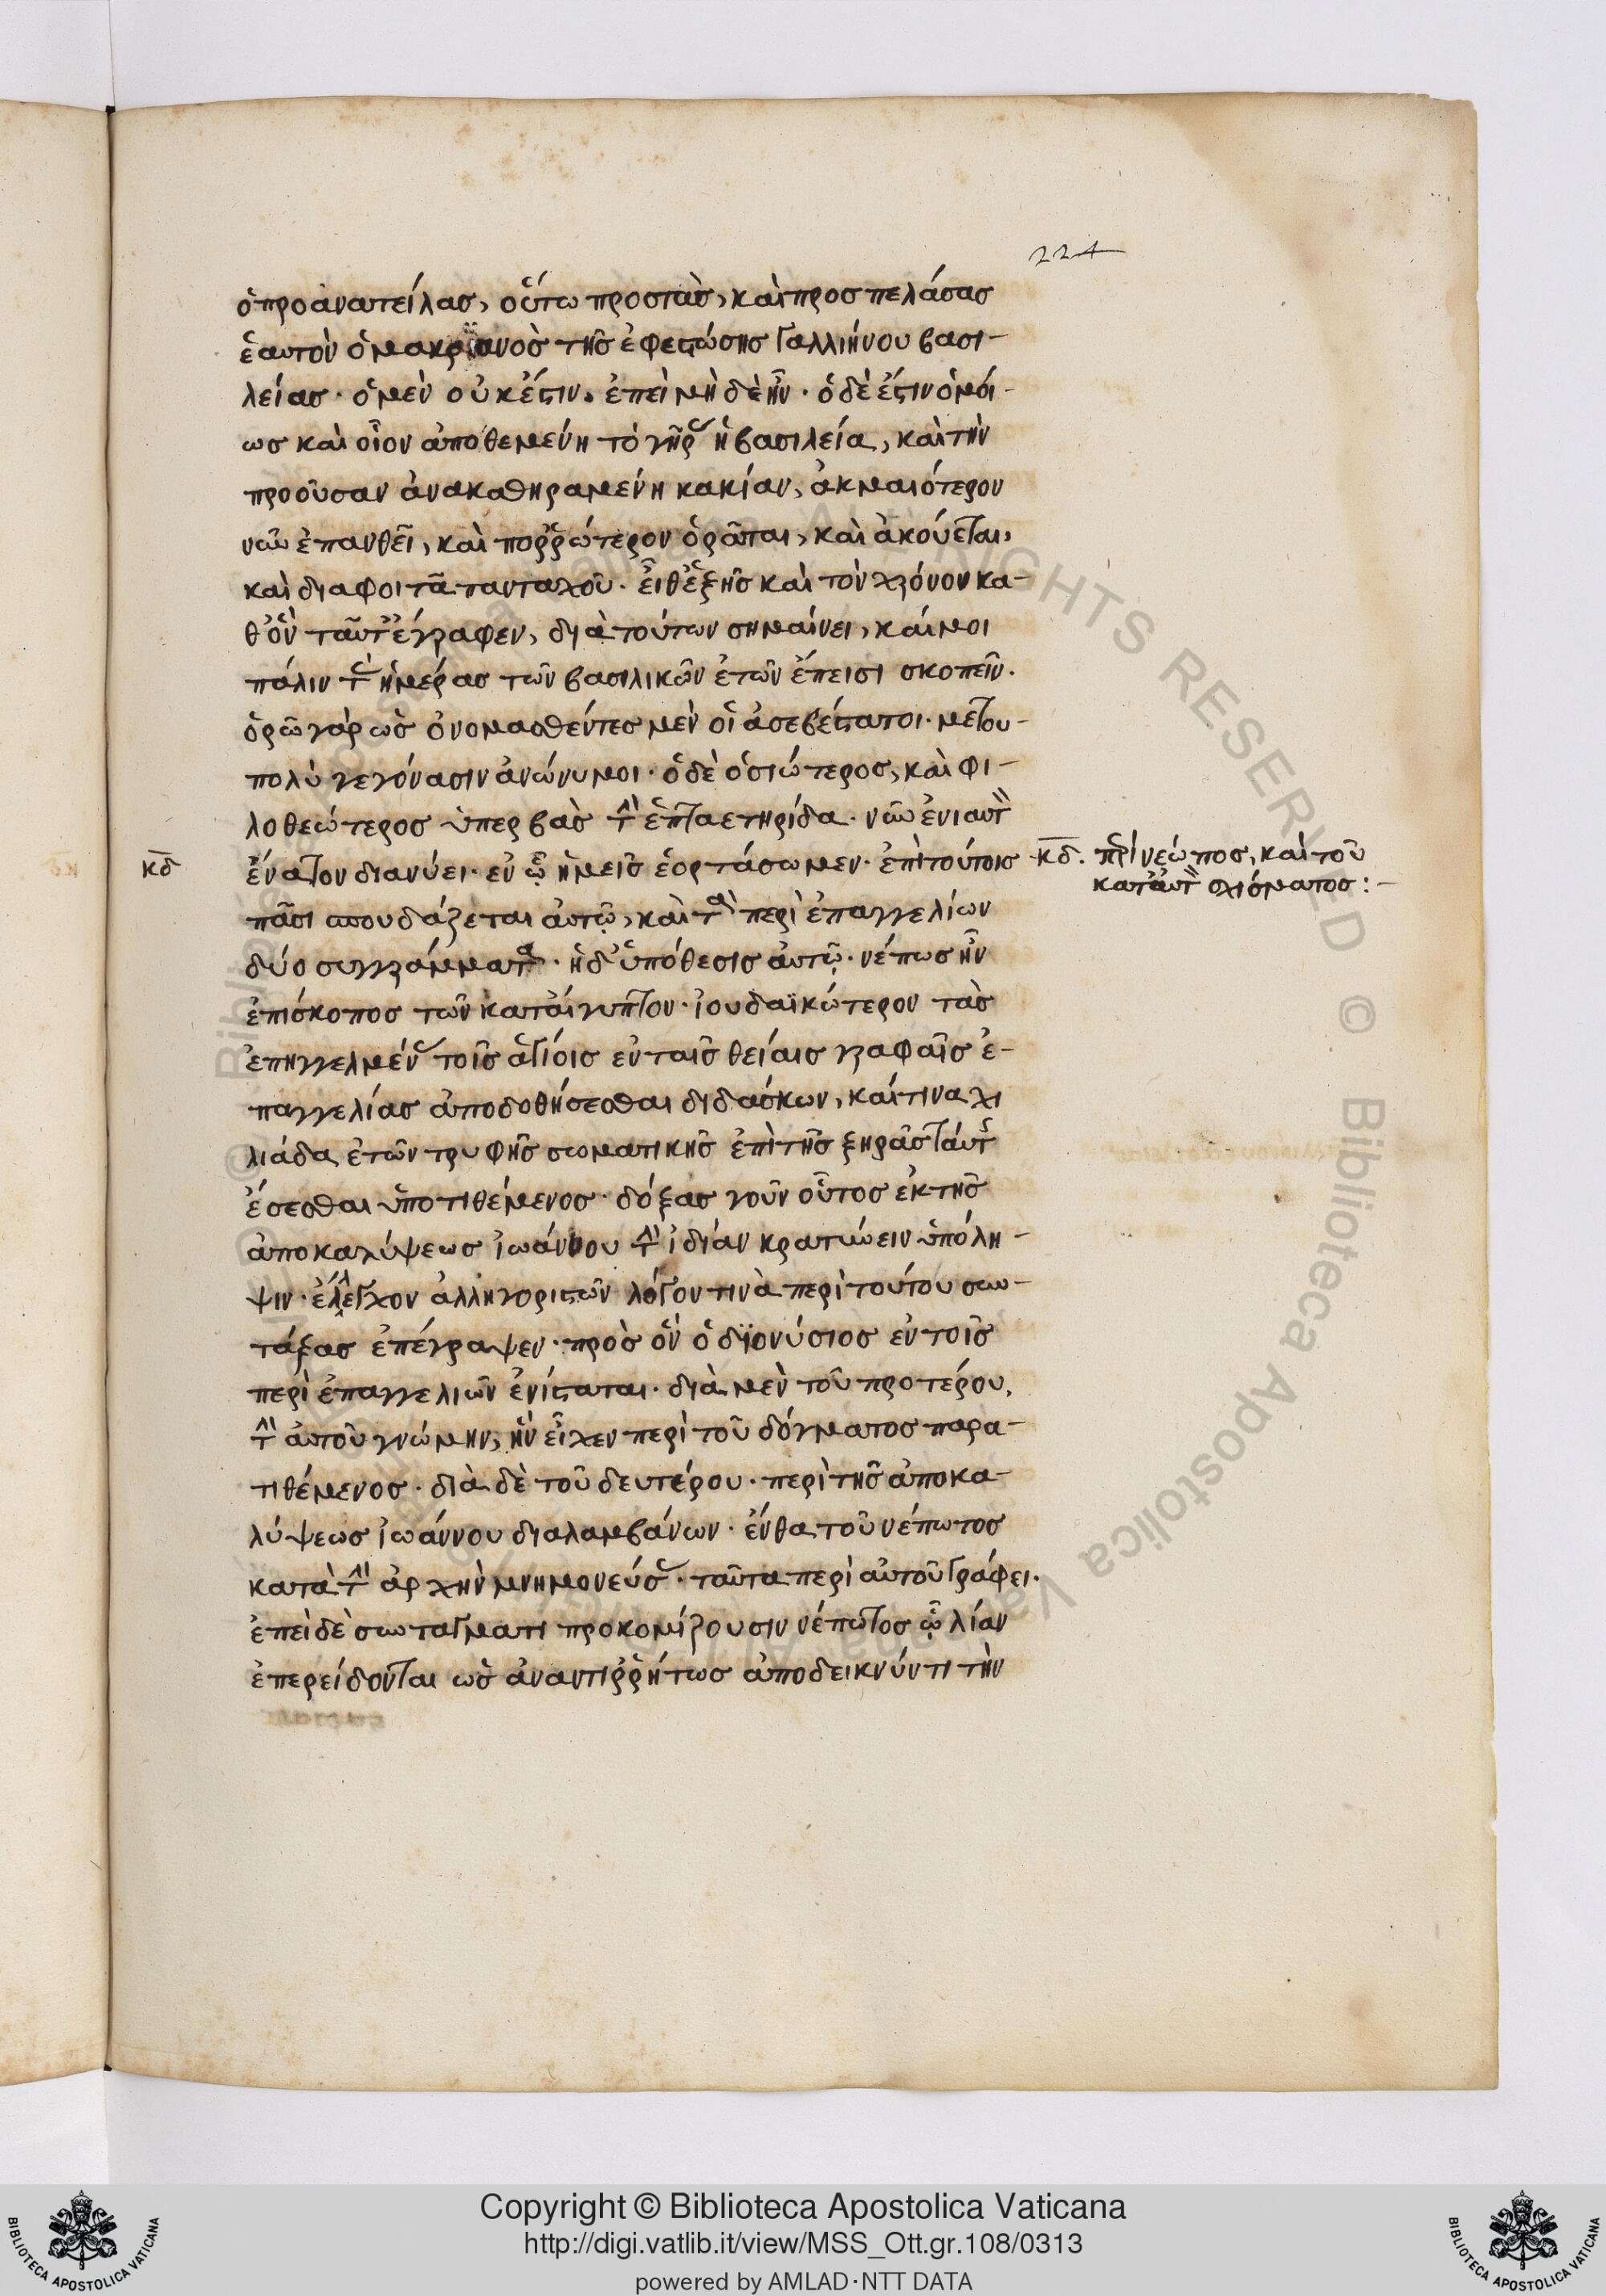 224
ὁ προανατείλας, οὕτω προστὰς, καὶ προσπελάσας
ἑαυτὸν ὁ μακριανὸς τῆς ἐφεστώσης Γαλλιήνου βασι-
λείας· ὁ μὲν οὐκ ἔστιν. ἐπεὶ μὴ δὲ ἦν· ὁ δὲ ἔστιν ὁμοί-
ως καὶ οἷον ἀποθεμένη τὸ γῆρας ἡ βασιλεία, καὶ τὴν
προοῦσαν ἀνακαθηραμένη κακίαν, ἀκμαιότερον
νῦν ἐπανθεῖ, καὶ πορῤῥώτερον ὁρᾶται, καὶ ἀκούεται,
καὶ διαφοιτᾶ πανταχοῦ. εἶθ' ἑξῆς καὶ τὸν χρόνον κα-
θ' ὃν ταῦτ' ἔγραφεν, διὰ τούτων σημαίνει, καί μοι
πάλιν τὰς ἡμέρας τῶν βασιλικῶν ἐτῶν ἔπεισι σκοπεῖν.
ὁρῶ γὰρ ὡς ὀνομασθέντες μὲν οἱ ἀσεβέστατοι· μετ' οὐ-
πολὺ γεγόνασιν ἀνώνυμοι· ὁ δὲ ὁσιώτερος, καὶ φι-
λοθεώτερος ὑπερβὰς τὴν ἑπταετηρίδα· νῦν ἐνιαυτὸν
κδ
ἔνατον διανύει· ἐν ᾧ ἡμεῖς ἑορτάσωμεν· ἐπὶ τούτοις
κδ. περὶ νέωπος, καὶ τοῦ
κατ' αὐτὸν σχίσματος:-
πᾶσι σπουδάζεται αὐτῷ, καὶ τὰ περὶ ἐπαγγελίων
δύο συγγράμματα· ἡ δ' ὑπόθεσις αὐτῷ· νέπως ἦν
ἐπίσκοπος τῶν κατ' αἴγυπτον· ἰουδαϊκώτερον τὰς
ἐπηγγελμένας τοῖς ἁγίοις ἐν ταῖς θείαις γραφαῖς ἐ-
παγγελίας ἀποδοθήσεσθαι διδάσκων, καί τινα χι
λιάδα ἐτῶν τρυφῆς σωματικῆς ἐπὶ τῆς ξηρᾶς ταύτης
ἔσεσθαι ὑποτιθέμενος· δόξας γοῦν οὗτος ἐκ τῆς
ἀποκαλύψεως ἰωάννου τὴν ἰδίαν κρατύνειν ὑπόλη-
ψιν· ἔλεγχον ἀλληγοριστῶν λόγον τινὰ περὶ τούτου συν-
τάξας ἐπέγραψεν· πρὸς ὃν ὁ διονύσιος ἐν τοῖς
περὶ ἐπαγγελιῶν ἐνίσταται· διὰ μὲν τοῦ προτέρου,
τὴν αὐτοῦ γνώμην, ἣν εἶχεν περὶ τοῦ δόγματος παρα-
τιθέμενος· διὰ δὲ τοῦ δευτέρου· περὶ τῆς ἀποκα-
λύψεως ἰωάννου διαλαμβάνων· ἔνθα τοῦ νέπωτος
κατὰ τὴν ἀρχὴν μνημονεύσας· ταῦτα περὶ αὐτοῦ γράφει.
ἐπεὶ δὲ συνταγματι προκομίζουσιν νέπωτος ᾧ λίαν
ἐπερείδονται ὡς ἀναντιῤῥήτως ἀποδεικνύντι τὴν
Copyright © Biblioteca Apostolica Vaticana
http://digi.vatlib.it/view/MSS_Ott.gr.108/0313
powered by AMLAD·NTT DATA
BIBLIOTECA APOSTOLICA VATICANA
BIBLIOTECA APOSTOLICA VATICANA